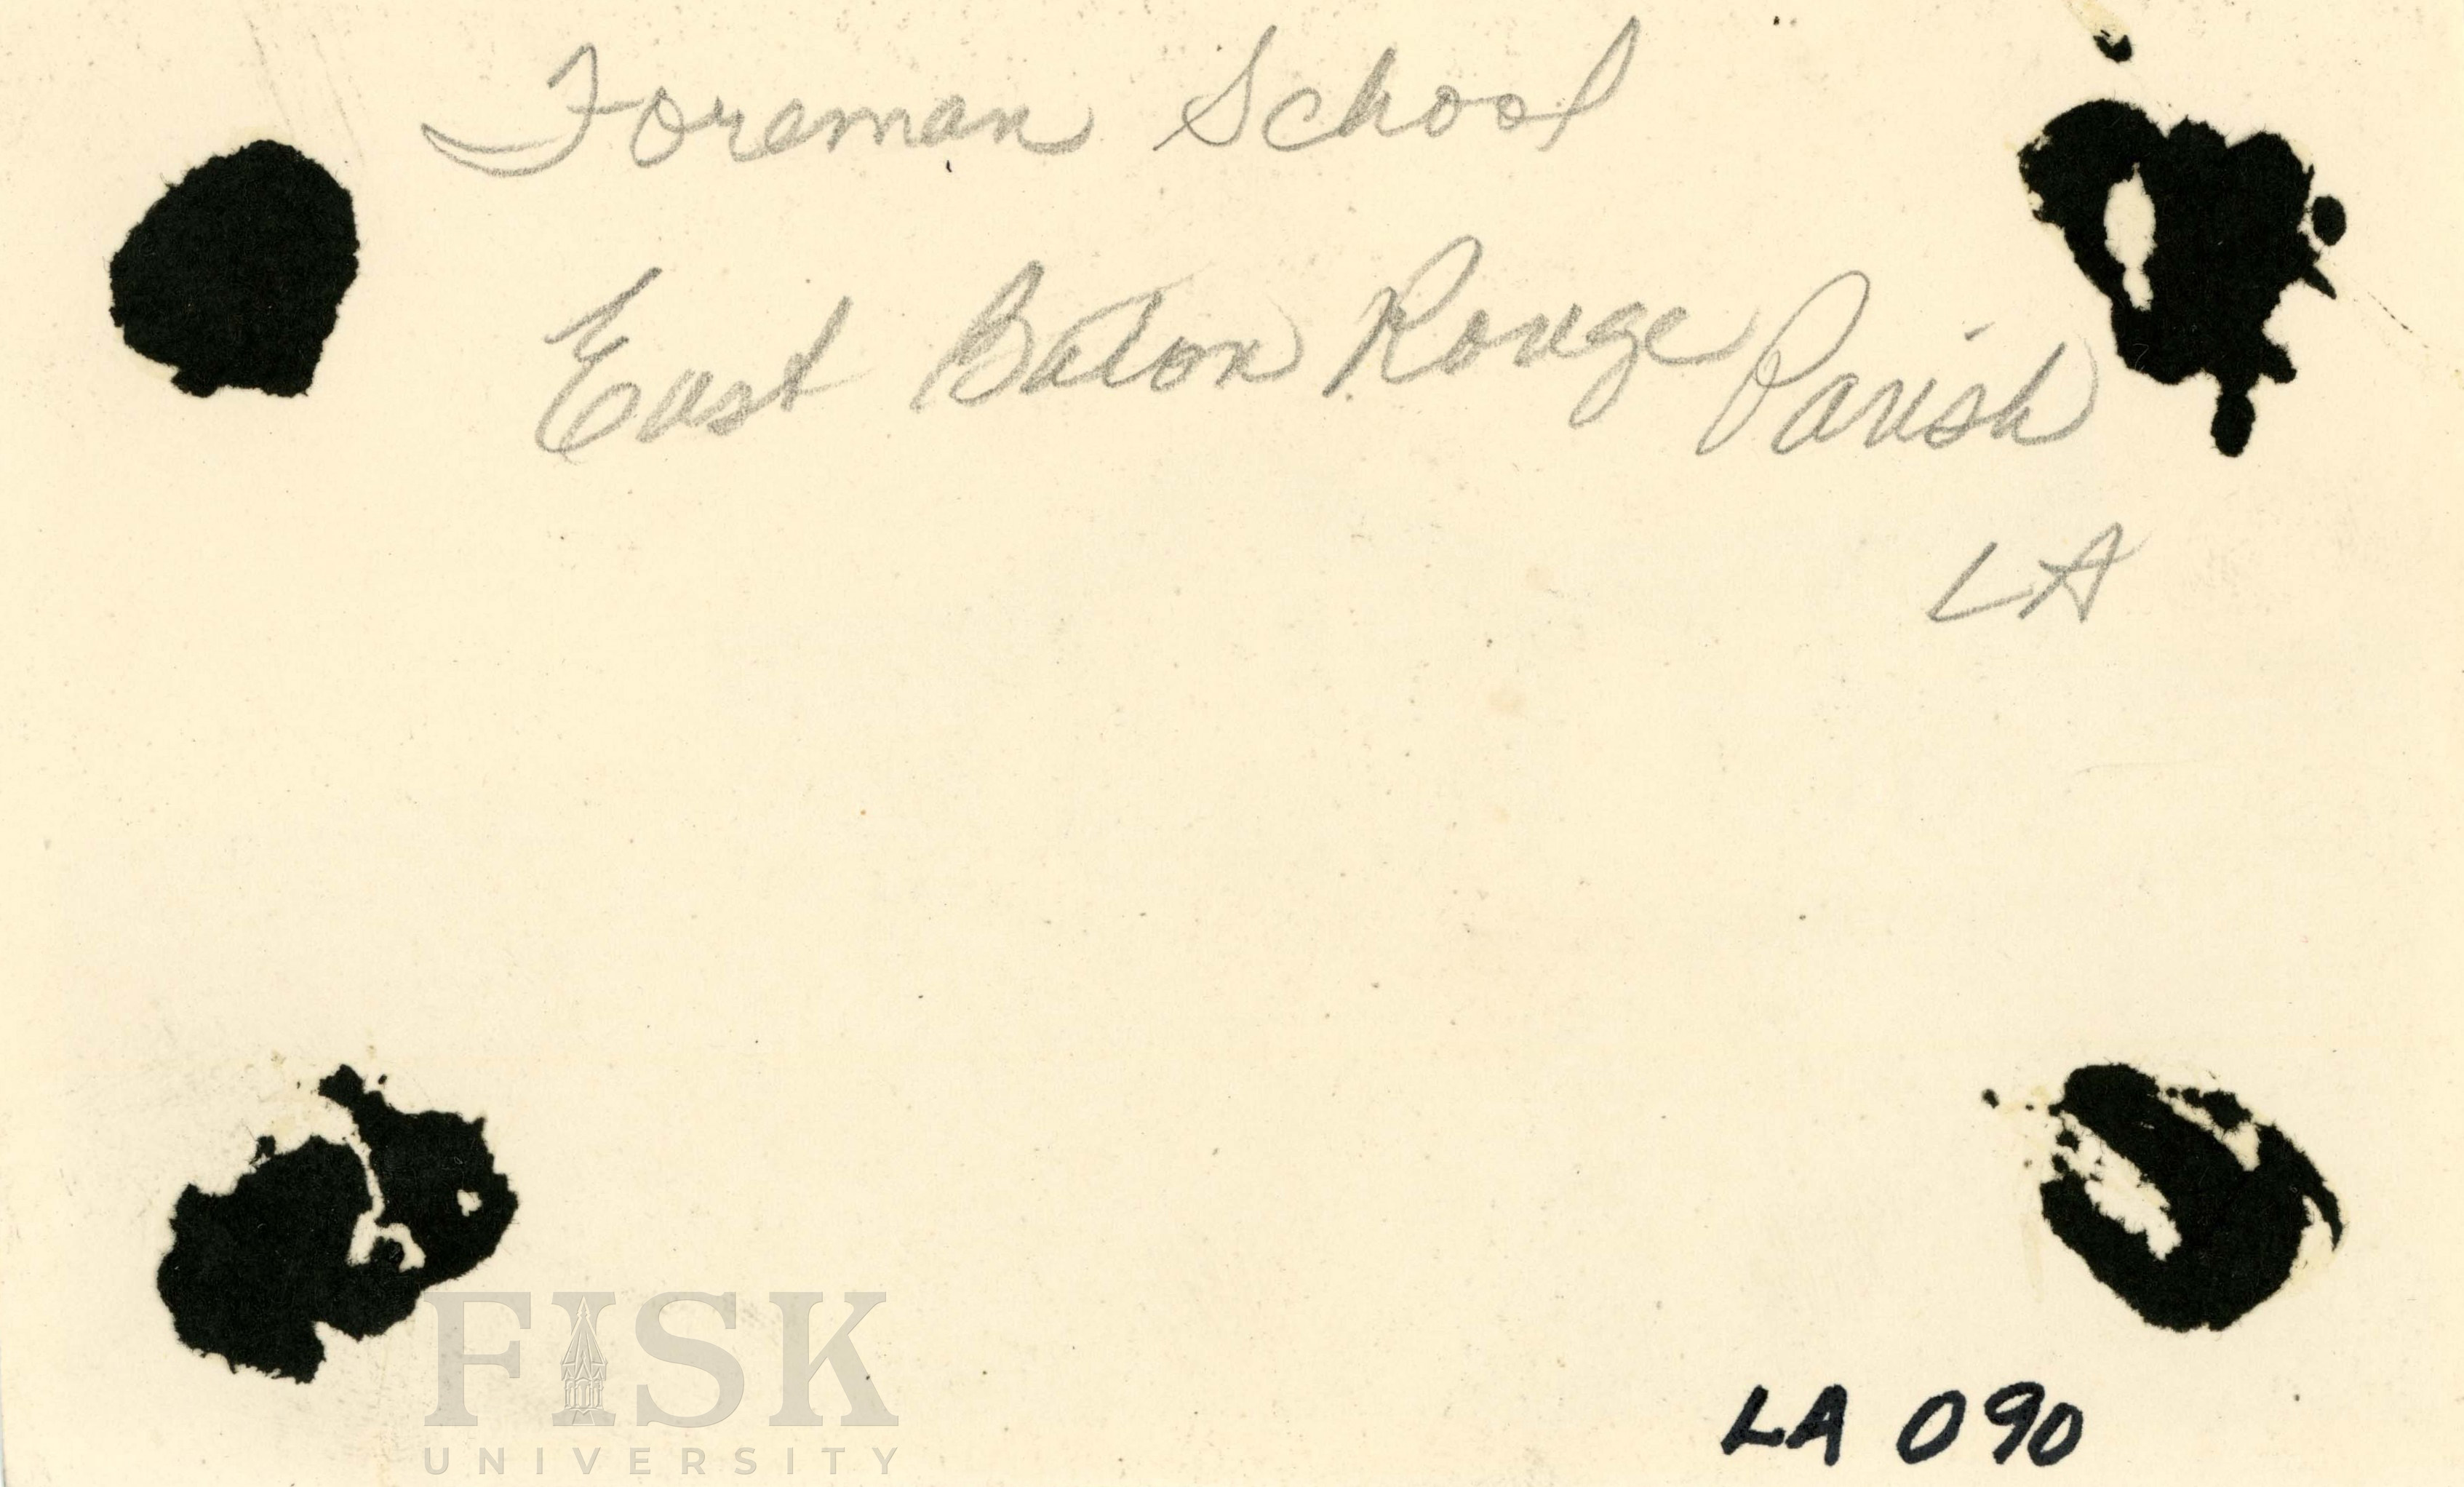 Foreman School
East Baton Rouge Parish
LA
FISK
UNIVERSITY
LA 090